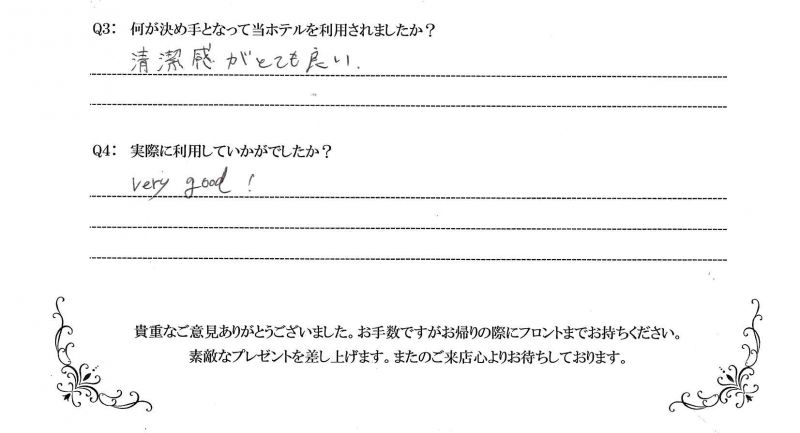 Q3: 何が決め手となって当ホテルを利用されましたか？
清潔感がとても良い.
Q4: 実際に利用していかがでしたか？
very good!
貴重なご意見ありがとうございました。お手数ですがお帰りの際にフロントまでお持ちください。
素敵なプレゼントを差し上げます。またのご来店心よりお待ちしております。